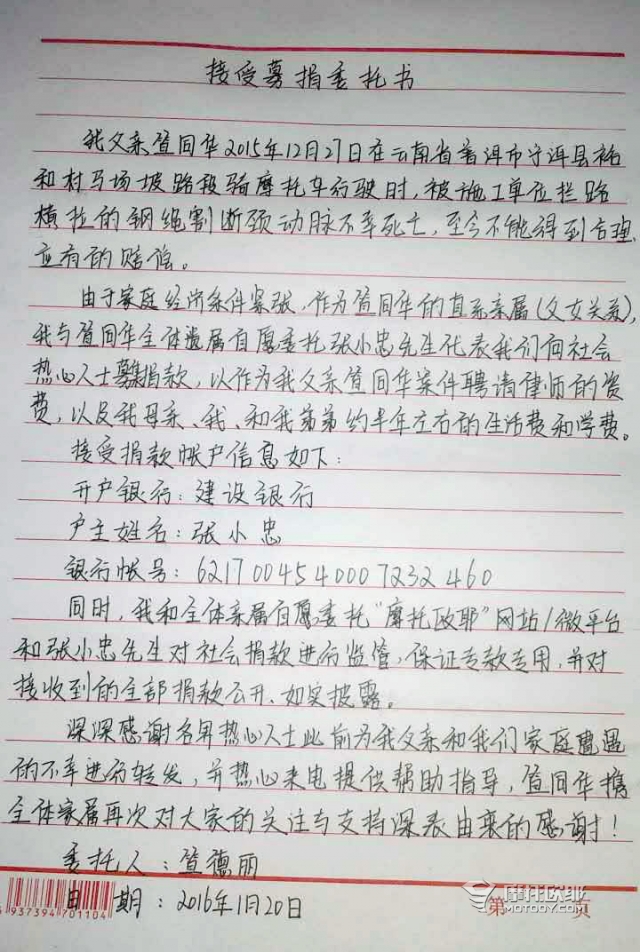 接受募捐委托书
我父亲笪同华2015年12月27日在云南省普洱市宁洱县裕
和村马场坡路段骑摩托车行驶时，被施工单位拦路
横拉的钢绳割断颈动脉不幸死亡，至今不能得到合理、
应有的赔偿。
由于家庭经济条件紧张，作为笪同华的直系亲属（父女关系），
我与笪同华全体遗属自愿委托张小忠先生代表我们向社会
热心人士募集捐款，以作为我父亲笪同华案件聘请律师的资
费，以及我母亲、我、和我弟弟约半年左右的生活费和学费。
接受捐款帐户信息如下：
开户银行：建设银行
户主姓名：张小忠
银行帐号：6217 0045 4000 7232 460
同时，我和全体亲属自愿委托“摩托欧耶”网站/微平台
和张小忠先生对社会捐款进行监管，保证专款专用，并对
接收到的全部捐款公开、如实披露。
深深感谢各界热心人士此前为我父亲和我们家庭遭遇
的不幸进行转发，并热心来电提供帮助指导，笪同华携
全体家属再次对大家的关注与支持深表由衷的感谢！
委托人：笪德丽
日期：2016年1月20日
937394701104
第 页
摩托欧耶
MOTOOY.COM